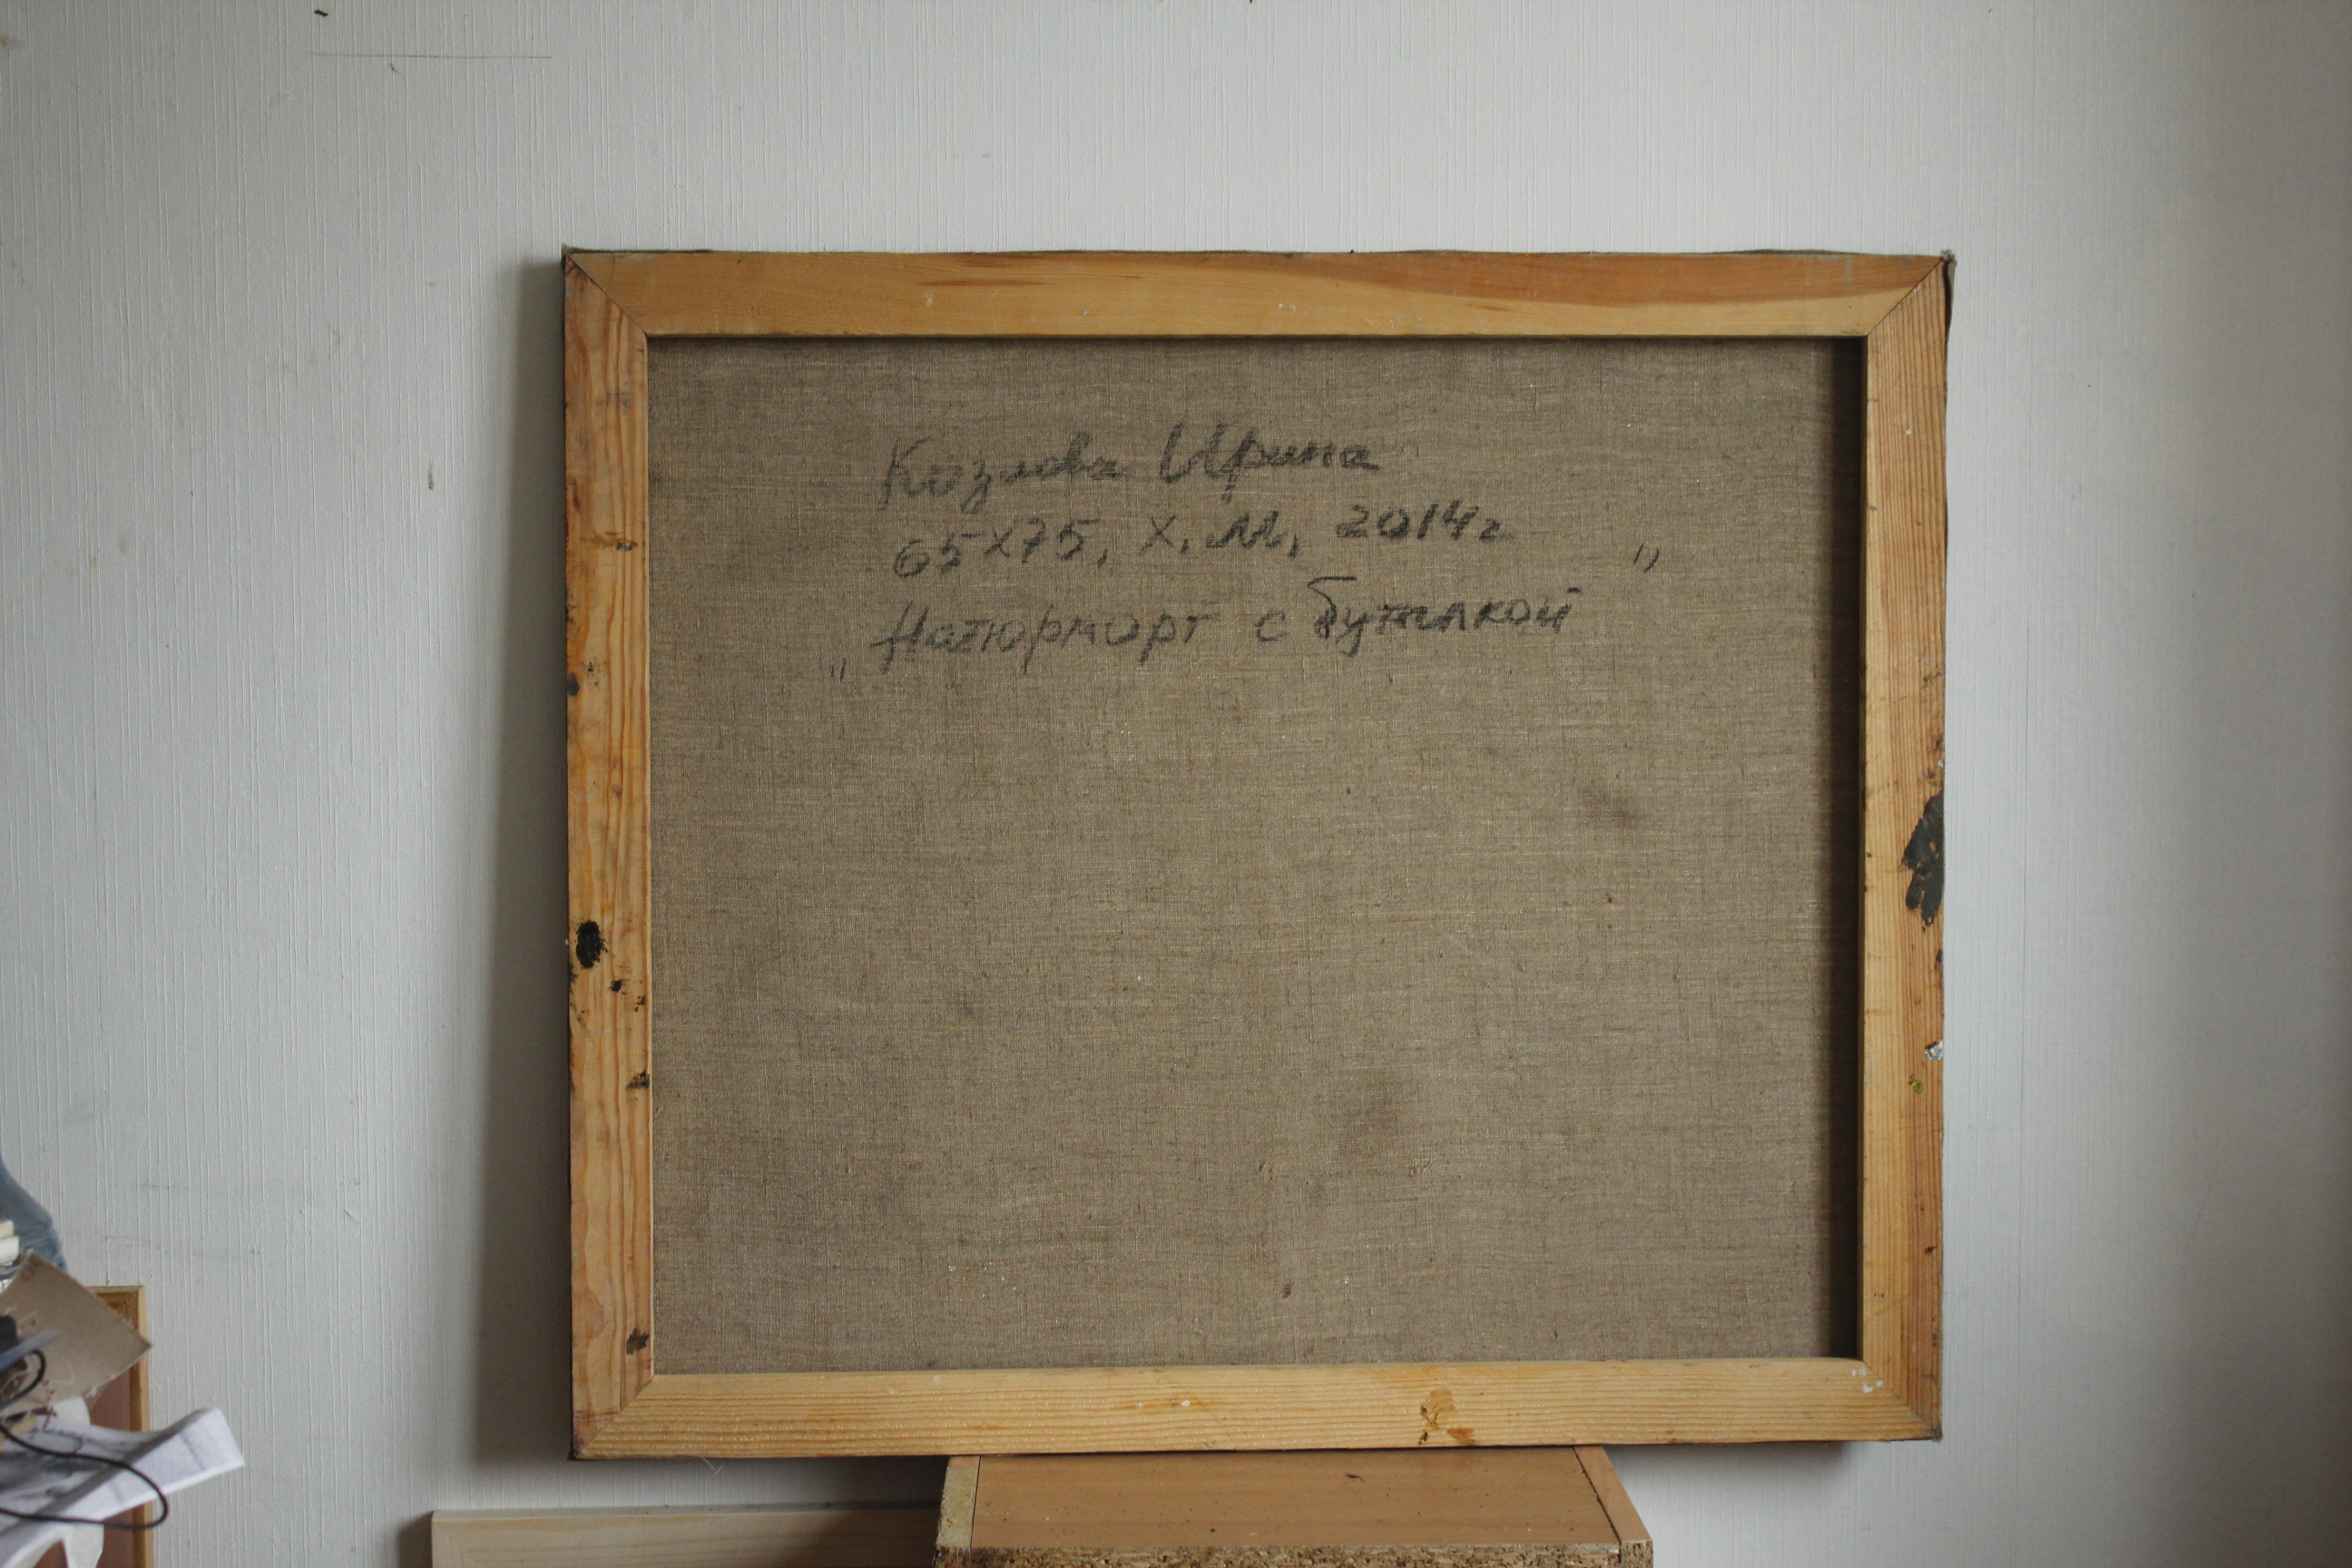 Козлова Ирина
65x75, х.м, 2014г
„Натюрморт с бутылкой”